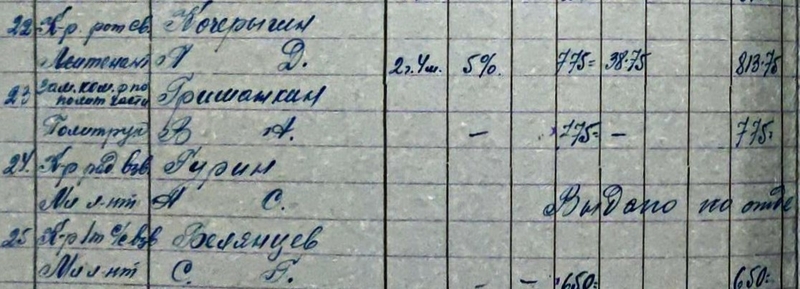 22 К-р. рот св. Кочерыгин
Лейтенант А Д. 2г.4м. 5% 775= 38-75 813-75
23 Зам.ком.р по полит части Гришанкин
Политрук В А. — 775= — 775=
24. К-р рад взв. Гурин
Мл л-нт А С. Выдано по отде
25 К-р 1т с/с взв Белянцев
Мл л-нт С. П. - - 650= 650=